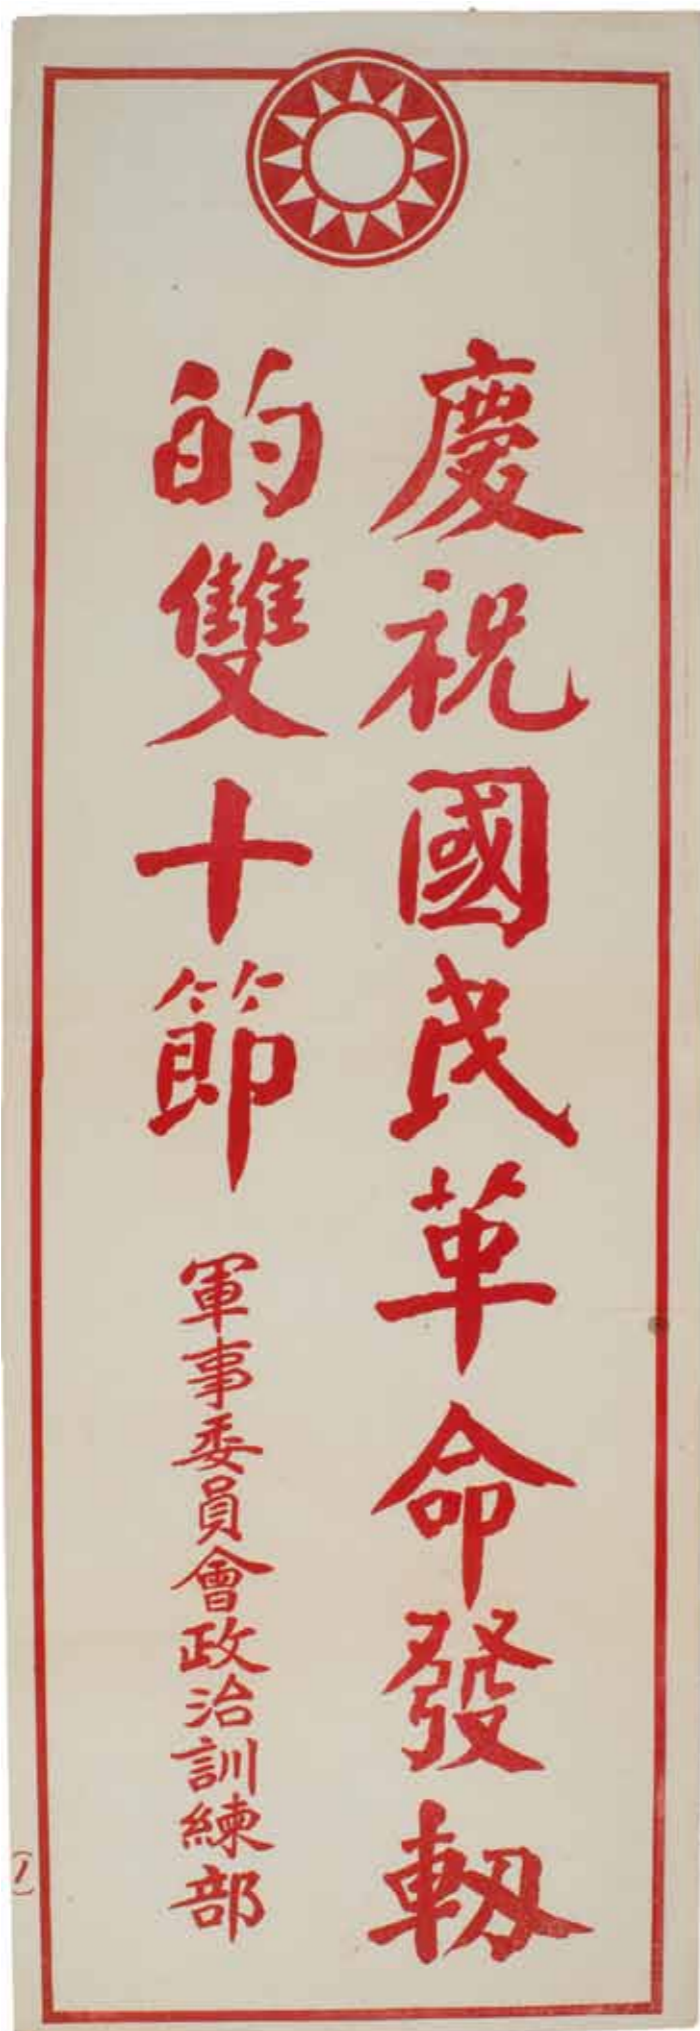 慶祝國民革命發軔
的雙十節
軍事委員會政治訓練部
(1)